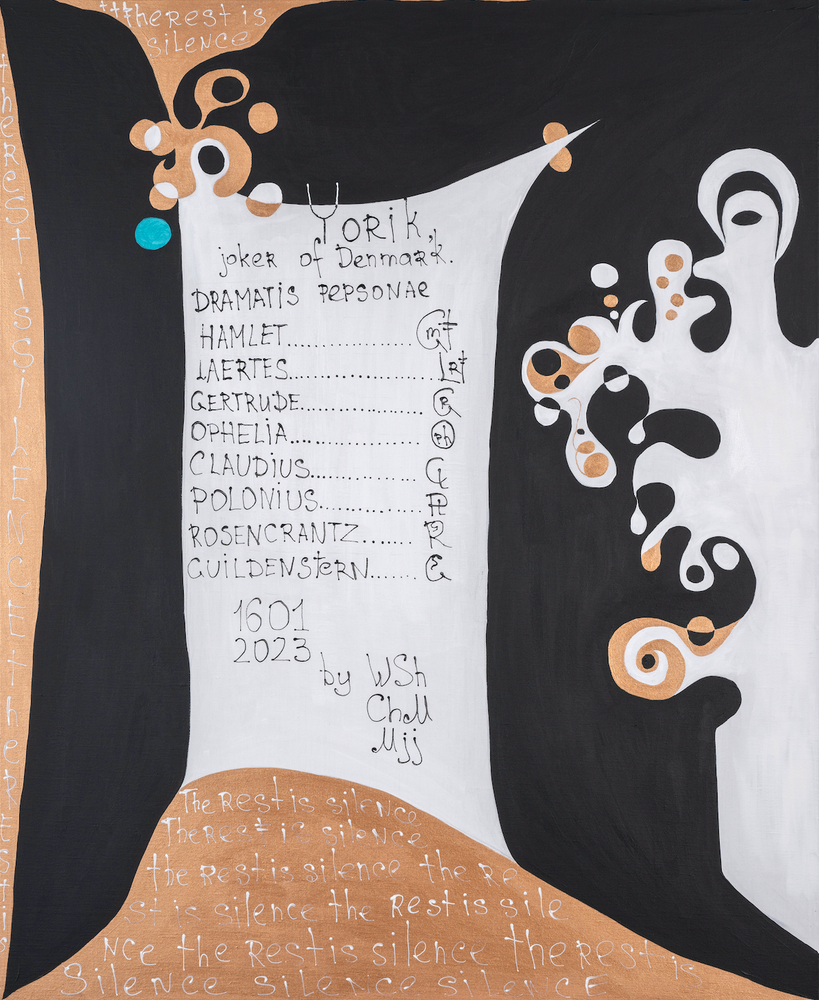 therest is
silence
therestissilencetherestis
Yorik,
joker of Denmark.
DRAMATIS PEPSONAE
HAMLET.................. Gmt
LAERTES.................. LRt
GERTRUDE.................. G
OPHELIA.................. Oph
CLAUDIUS.................. C
POLONIUS.................. P
ROSENCRANTZ....... R
GUILDENSteRN....... G
1601
2023
by WSh
ChM
Mjj
The Rest is silence
The Rest is silence
the Rest is silence the Re
st is silence the Rest is sile
NCe the Rest is silence the rest is
Silence silence silence